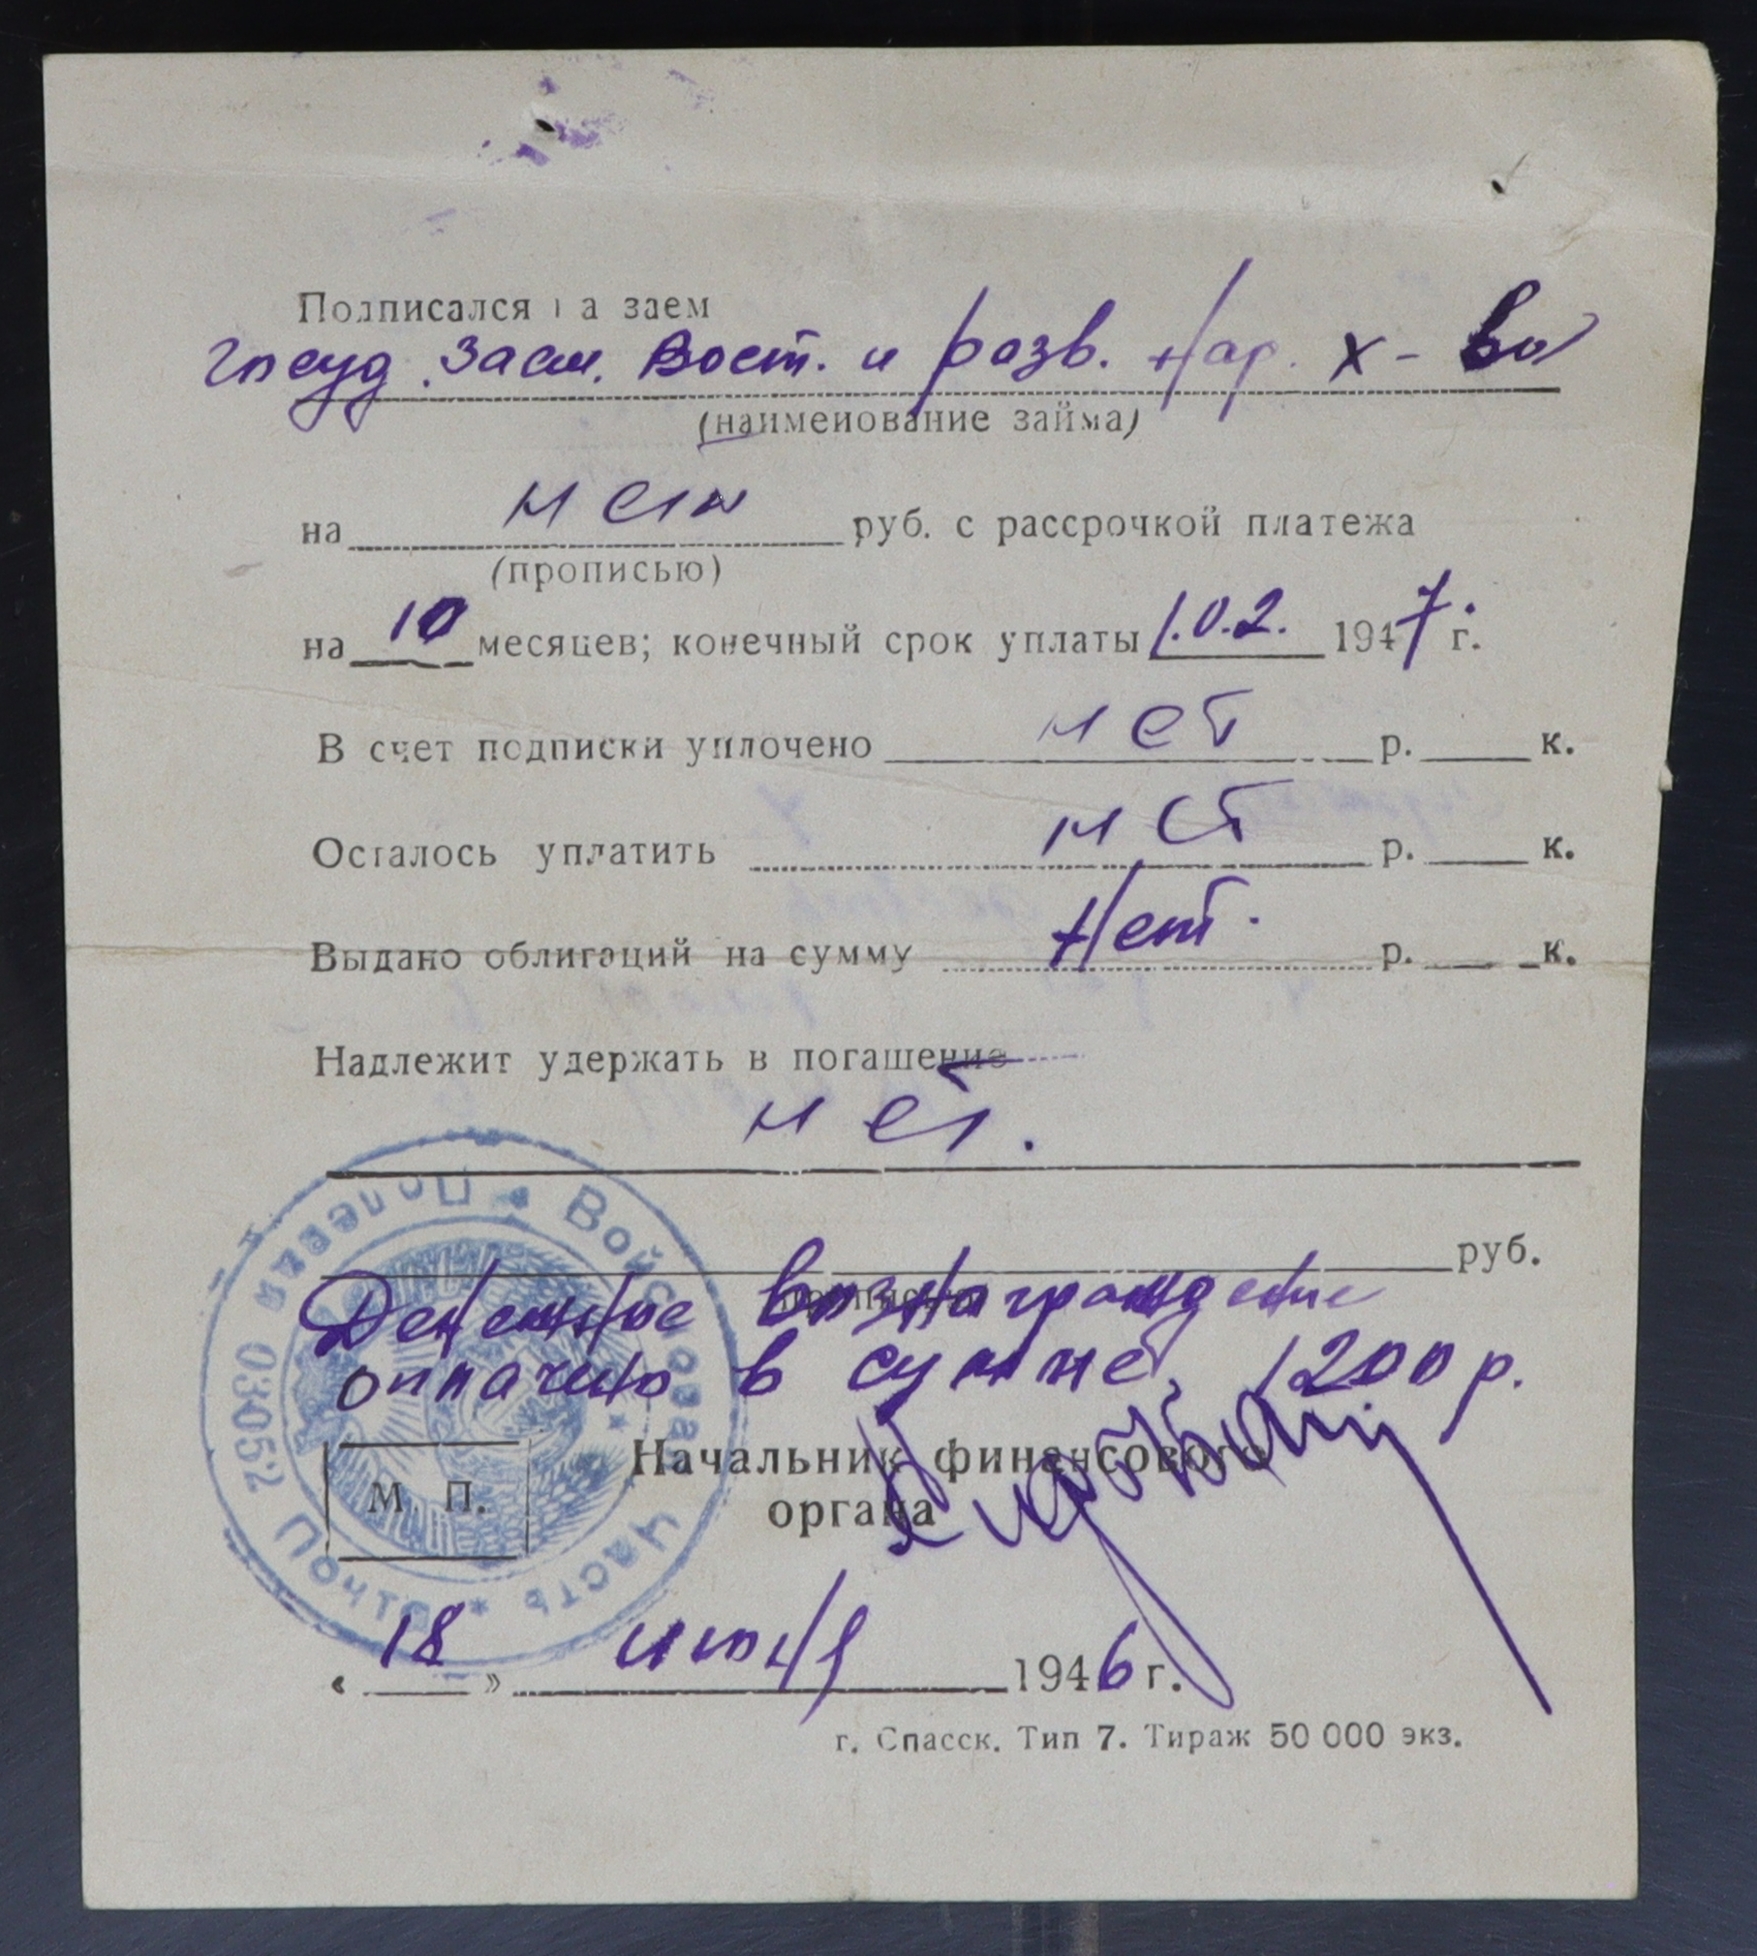 Подписался на заем
Госуд. Заем. Вост. и разв. Нар. х-ва
(наименование займа)
на руб. с рассрочкой платежа
(прописью)
на 10 месяцев; конечный срок уплаты 1.02. 1947 г.
В счет подписки уплочено нет р. к.
Осталось уплатить нет р. к.
Выдано облигаций на сумму Нет. р. к.
Надлежит удержать в погашение
нет.
руб.
прописью
Денежное вознаграждение
оплачено в сумме 1200 р.
Начальник финансового
органа
М. П.
Полевая Почта 03052 * Войсковая Часть *
« 18 » июня 1946 г.
г. Спасск. Тип 7. Тираж 50 000 экз.